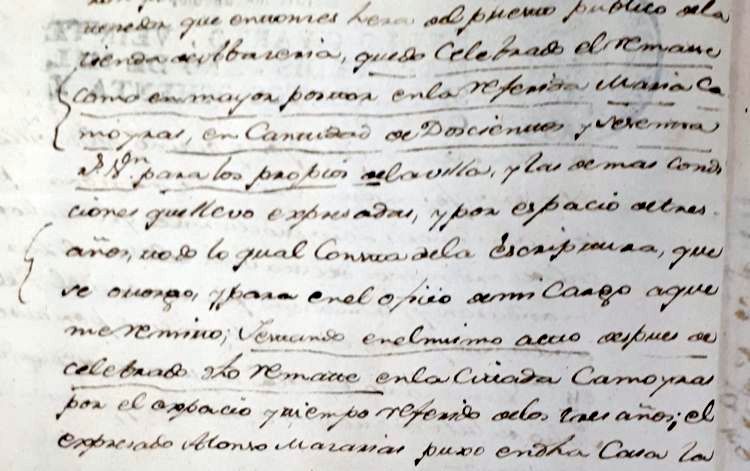 vendedor que entonces hera del puesto publico de la
tienda de Abazeria, quedo Celebrado el remate
como en mayor postor en la referida Maria Ca
moyras, en Cantidad de Doscientos y Setenta
rs. Vn. para los propios de la villa, y las demas condi
ciones que llevo expresadas, y por espacio de tres
años, todo lo qual Consta de la Escriptura, que
se otorgo, y para en el oficio de mi Cargo a que
me remito; Y estando en el mismo acto despues de
celebrado dho remate en la Citada Camoyras
por el espacio y tiempo referido de los tres años; el
expresado Alonso Mazarias puso en dha Casa la